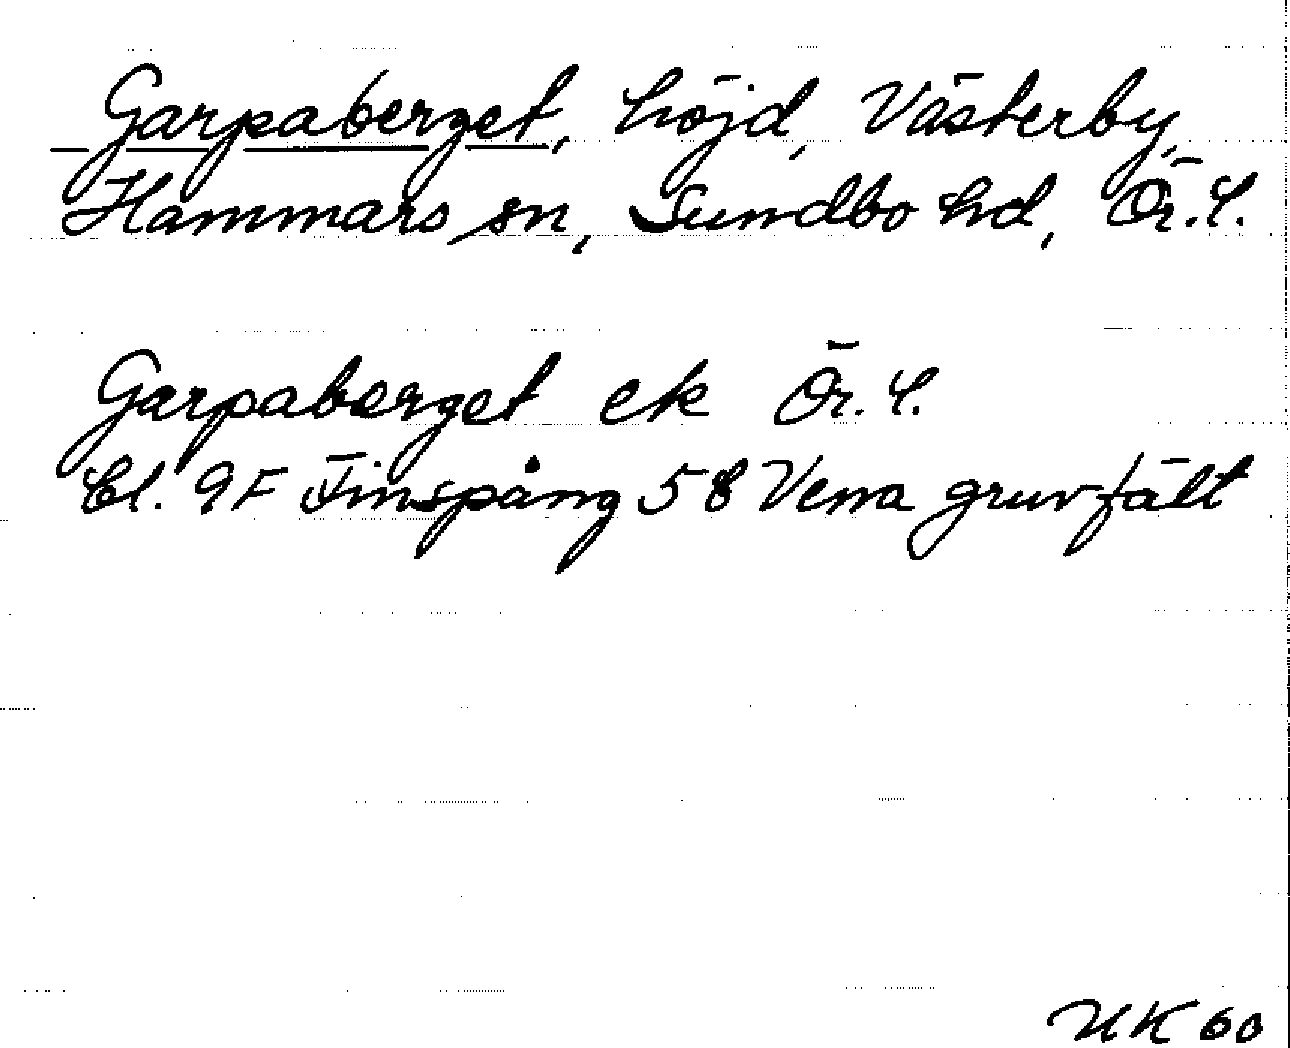 Garpaberget, höjd, Västerby,
Hammars sn, Sundbo hd, Ör. l.
Garpaberget ek Ör. l.
Bl. 9F Finspång 58 Vena gruvfält
NK 60